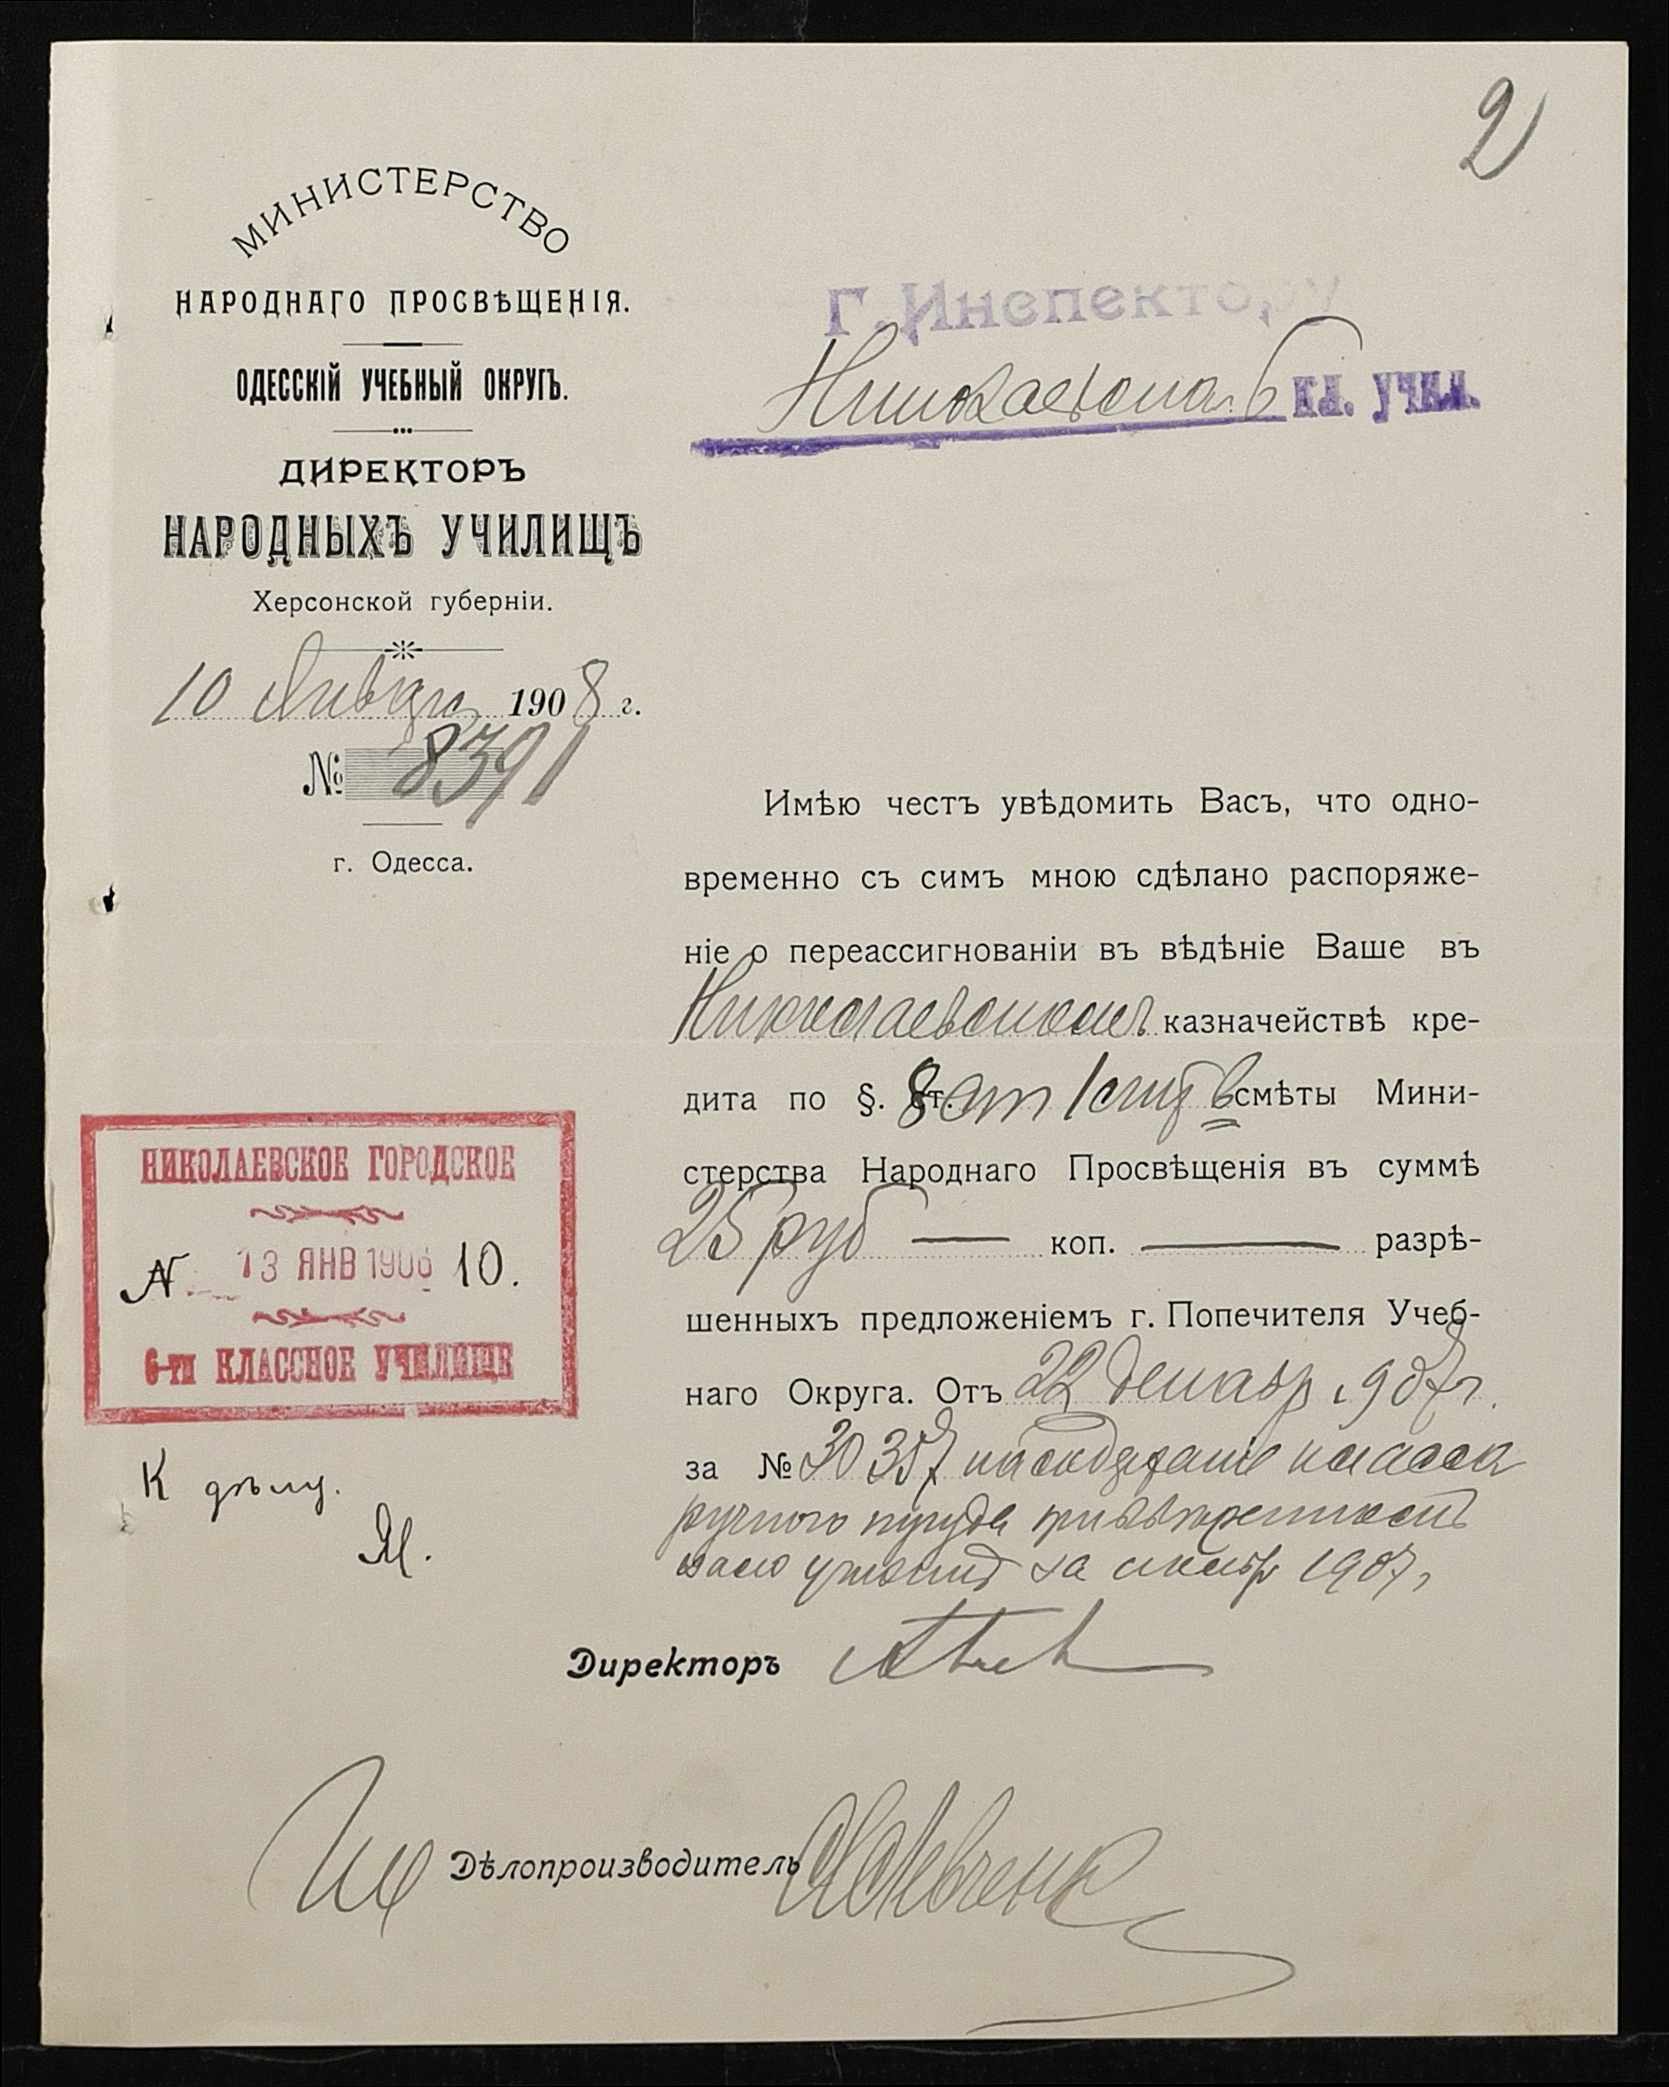 2
МИНИСТЕРСТВО
НАРОДНАГО ПРОСВѢЩЕНІЯ.
ОДЕССКІЙ УЧЕБНЫЙ ОКРУГЪ.
ДИРЕКТОРЪ
НАРОДНЫХЪ УЧИЛИЩЪ
Херсонской губерніи.
10 Января 1908 г.
№ 8391
г. Одесса.
Г. Инспектору
Николаевскаго 6 кл. учил.
Имѣю честъ увѣдомить Васъ, что одно-
временно съ симъ мною сдѣлано распоряже-
ніе о переассигнованіи въ вѣдѣніе Ваше въ
Николаевскомъ казначействѣ кре-
дита по §. 8 ст. ст 1 лит в смѣты Мини-
стерства Народнаго Просвѣщенія въ суммѣ
25 руб — коп. — разрѣ-
шенныхъ предложеніемъ г. Попечителя Учеб-
наго Округа. Отъ 22 декабр 1907 г.
за № 30357 на содержаніе класса
ручного труда при ввѣренномъ
вамъ училищѣ за 1907 г.
НИКОЛАЕВСКОЕ ГОРОДСКОЕ
N 13 ЯНВ 1908 10.
6-ТИ КЛАССНОЕ УЧИЛИЩЕ
К дѣлу.
Директоръ
Дѣлопроизводитель